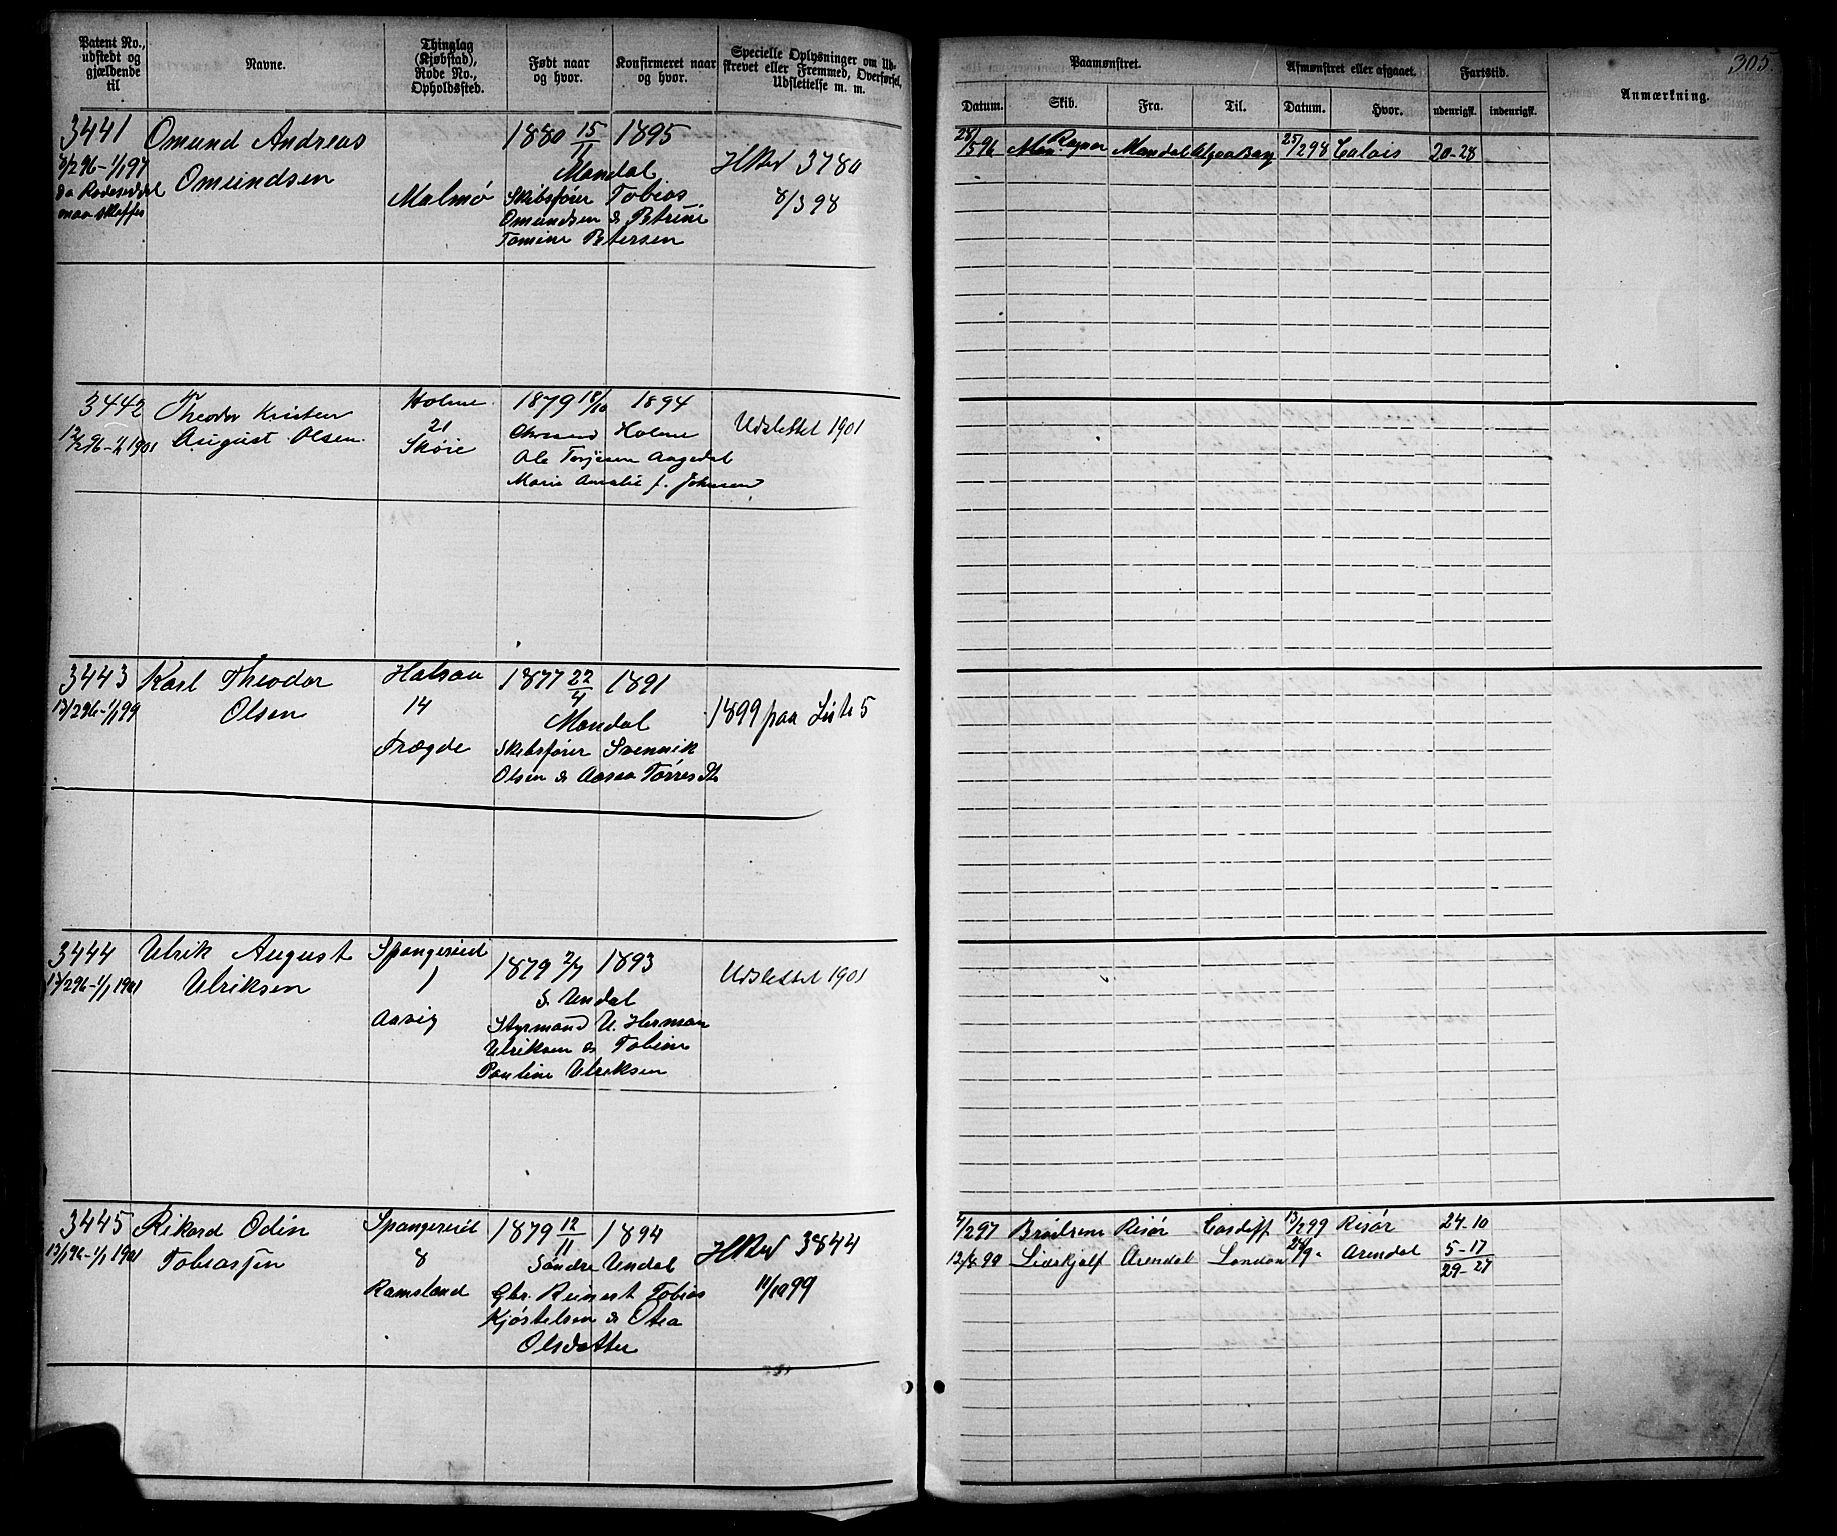 Patent No., udstedt og gjældende til
Navne.
Thinglag (Kjøbstad), Rode No., Opholdssted.
Født naar og hvor.
Konfirmeret naar og hvor.
Specielle Oplysninger om Udskrevet eller Fremmed, Overførsel, Udslettelse m. m.
3441 Omund Andreas 1880 15/11 1895
8/2 96-1/1 97 Omundsen Mandal HRul 3780
Malmø Skibsfører Tobias 8/3 98
Omundsen & Petrine
Tomine Petersen
3442 Theodor Kristen Holme 1879 18/10 1894
12/2 96-1/1 1901 August Olsen. 21 Holme Udslettet 1901
Skøie Ole Terjesen Aagedal
Marie Amalie f. Johnsen
3443 Karl Theodor Halsaa 1877 22/4 1891
13/2 96-1/1 99 Olsen 14 Mandal 1899 paa Liste 5
Trægde Skibsfører Svennik
Olsen & Aasaa Tørresdtr
3444 Ulrik August Spangereid 1879 2/7 1893
1/1 1901 Ulriksen 1 S. Undal Udslettet 1901
Aavig Styrmand U. Herman
Ulriksen & Tobine
Pauline Ulriksen
3445 Rikard Odin Spangereid 1879 12/11 1894
1/1 1901 Tobiassen 8 Søndre Undal HRul 3844
Ramsland Gbr. Reinert Tobias 11/10 99
Kjøstelsen & Otea
Olsdatter
305.
Paamønstret.
Afmønstret eller afgaaet.
Fartstid.
Anmærkning.
Datum. Skib. Fra. Til. Datum. Hvor. udenrigsk. indenrigsk.
28/5 96 Ragna Mandal 25/2 98 Calais 20-28
4/2 97 Brødrene Risør Cardiff 13/2 99 Risør 24-10
12/8 99 Lidskjalf Arendal London Arendal 5-17
29-27